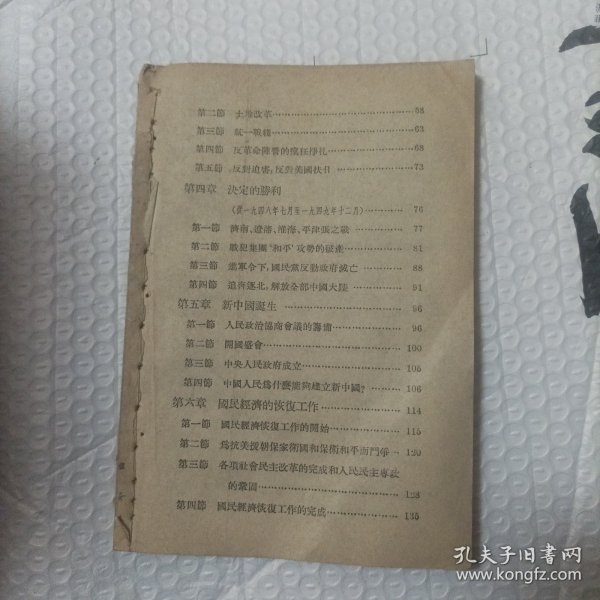 第二節 土地改革 58
第三節 統一戰綫 63
第四節 反革命陣營的瘋狂掙扎 68
第五節 反對迫害,反對美國扶日 73
第四章 決定的勝利
(從一九四八年七月至一九四九年十二月) 76
第一節 濟南、遼瀋、淮海、平津張之戰 77
第二節 戰犯集團“和平”攻勢的破產 81
第三節 進軍令下,國民黨反動政府滅亡 88
第四節 追奔逐北,解放全部中國大陸 91
第五章 新中國誕生 96
第一節 人民政治協商會議的籌備 96
第二節 開國盛會 100
第三節 中央人民政府成立 105
第四節 中國人民爲什麽能夠建立新中國? 106
第六章 國民經濟的恢復工作 114
第一節 國民經濟恢復工作的開始 115
第二節 爲抗美援朝保家衛國和保衛和平而鬥爭 120
第三節 各項社會民主改革的完成和人民民主專政
的鞏固 128
第四節 國民經濟恢復工作的完成 135
孔夫子旧書网
www.kongfz.com